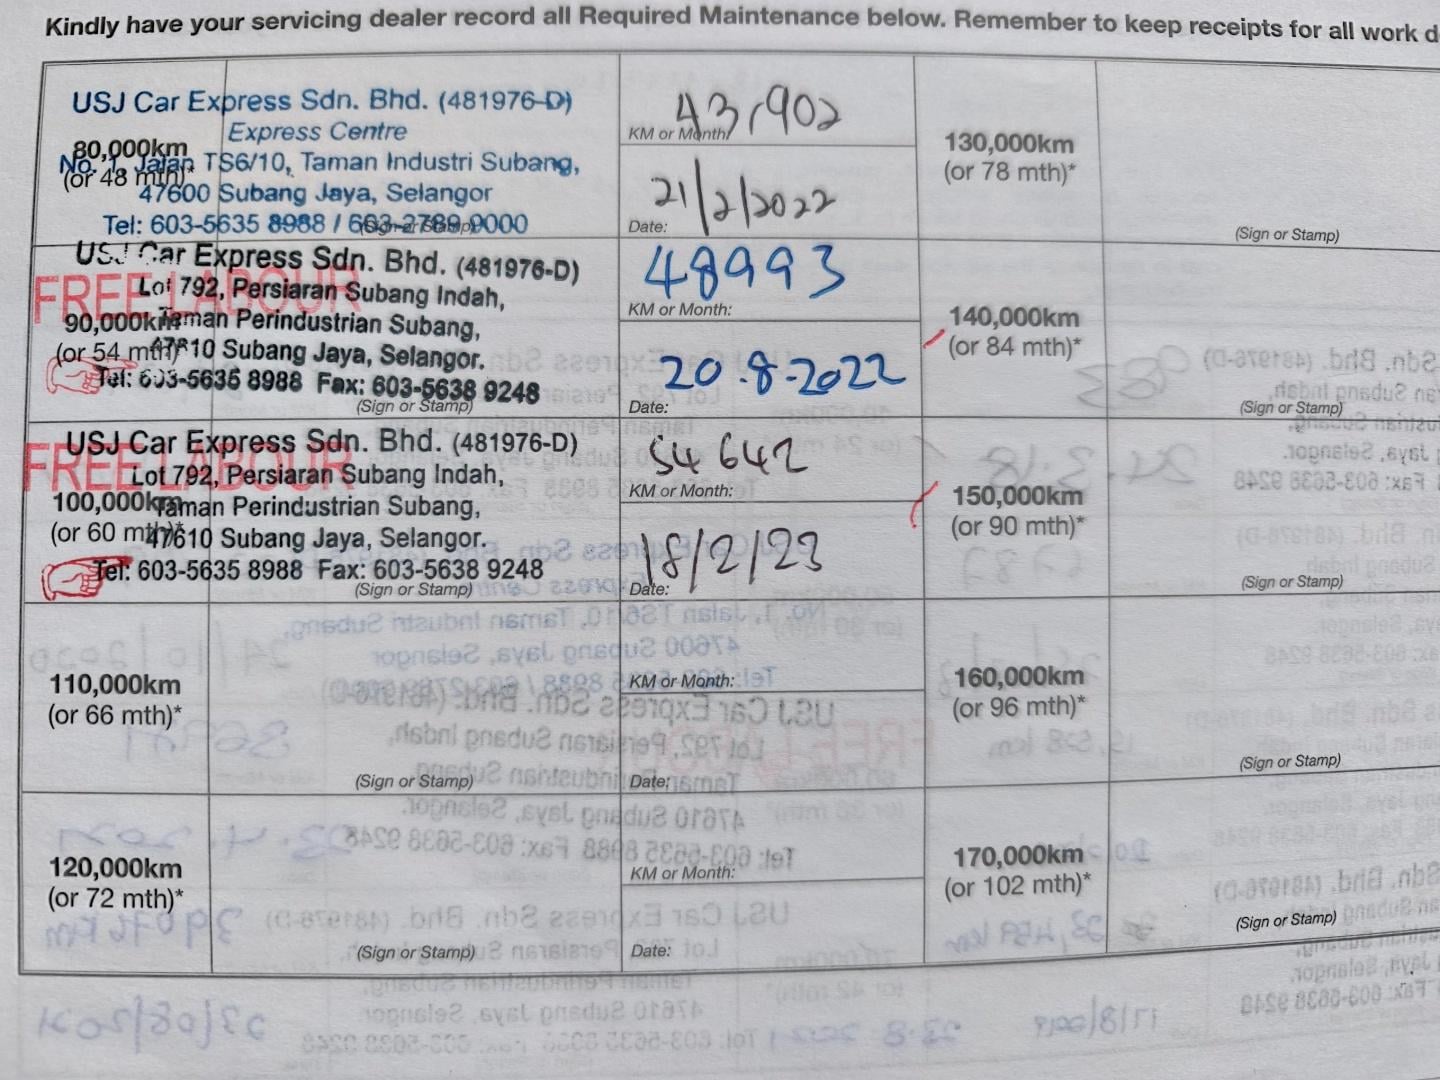 Kindly have your servicing dealer record all Required Maintenance below. Remember to keep receipts for all work d
USJ Car Express Sdn. Bhd. (481976-D)
Express Centre
80,000km
(or 48 mth)*
No. 1, Jalan TS6/10, Taman Industri Subang,
47600 Subang Jaya, Selangor
Tel: 603-5635 8988 / 603-2789 9000
(Sign or Stamp)
43,902
KM or Month:
21/2/2022
Date:
130,000km
(or 78 mth)*
(Sign or Stamp)
USJ Car Express Sdn. Bhd. (481976-D)
FREE LABOUR
Lot 792, Persiaran Subang Indah,
90,000km
Taman Perindustrian Subang,
(or 54 mth)*
47610 Subang Jaya, Selangor.
Tel: 603-5635 8988 Fax: 603-5638 9248
(Sign or Stamp)
48993
KM or Month:
20.8.2022
Date:
140,000km
(or 84 mth)*
(Sign or Stamp)
USJ Car Express Sdn. Bhd. (481976-D)
FREE LABOUR
Lot 792, Persiaran Subang Indah,
100,000km
Taman Perindustrian Subang,
(or 60 mth)*
47610 Subang Jaya, Selangor.
Tel: 603-5635 8988 Fax: 603-5638 9248
(Sign or Stamp)
54642
KM or Month:
18/2/23
Date:
150,000km
(or 90 mth)*
(Sign or Stamp)
110,000km
(or 66 mth)*
(Sign or Stamp)
KM or Month:
Date:
160,000km
(or 96 mth)*
(Sign or Stamp)
120,000km
(or 72 mth)*
(Sign or Stamp)
KM or Month:
Date:
170,000km
(or 102 mth)*
(Sign or Stamp)